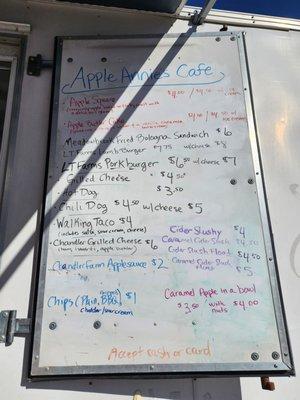 Apple Annies Cafe
Apple Square $4.00 / $4.50 w/ ice cream
Apple Butter Cake
Meadowbrook Fried Bologna Sandwich $6
LT Farms Lamb Burger $7.75 w/cheese $8
LT Farms Porkburger $6.50 w/cheese $7
Grilled Cheese $4.50
Hot Dog $3.50
Chili Dog $4.50 w/cheese $5
Walking Taco $4
(includes salsa, sour cream, cheese)
Chandler Grilled Cheese $6
Chandler Farm Applesauce $2
Chips (Plain, BBQ) $1
cheddar/sour cream
Cider Slushy $4
Caramel Cider Slush
Cider Slush Float $4.50
Caramel Cider Slush
Float $5
Caramel Apple in a bowl
$3.50 with nuts $4.00
Accept cash or card